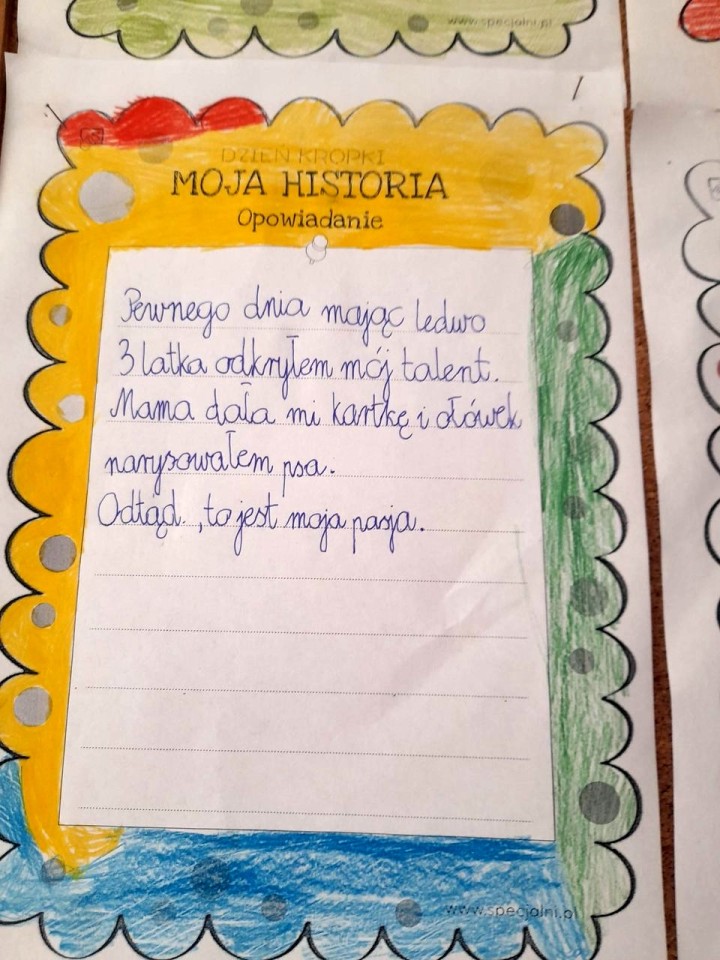 www.specjalni.pl
DZIEŃ KROPKI
MOJA HISTORIA
Opowiadanie
Pewnego dnia mając ledwo
3 latka odkryłem mój talent.
Mama dała mi kartkę i ołówek
narysowałem psa.
Odtąd. , to jest moja pasja.
www.specjalni.pl